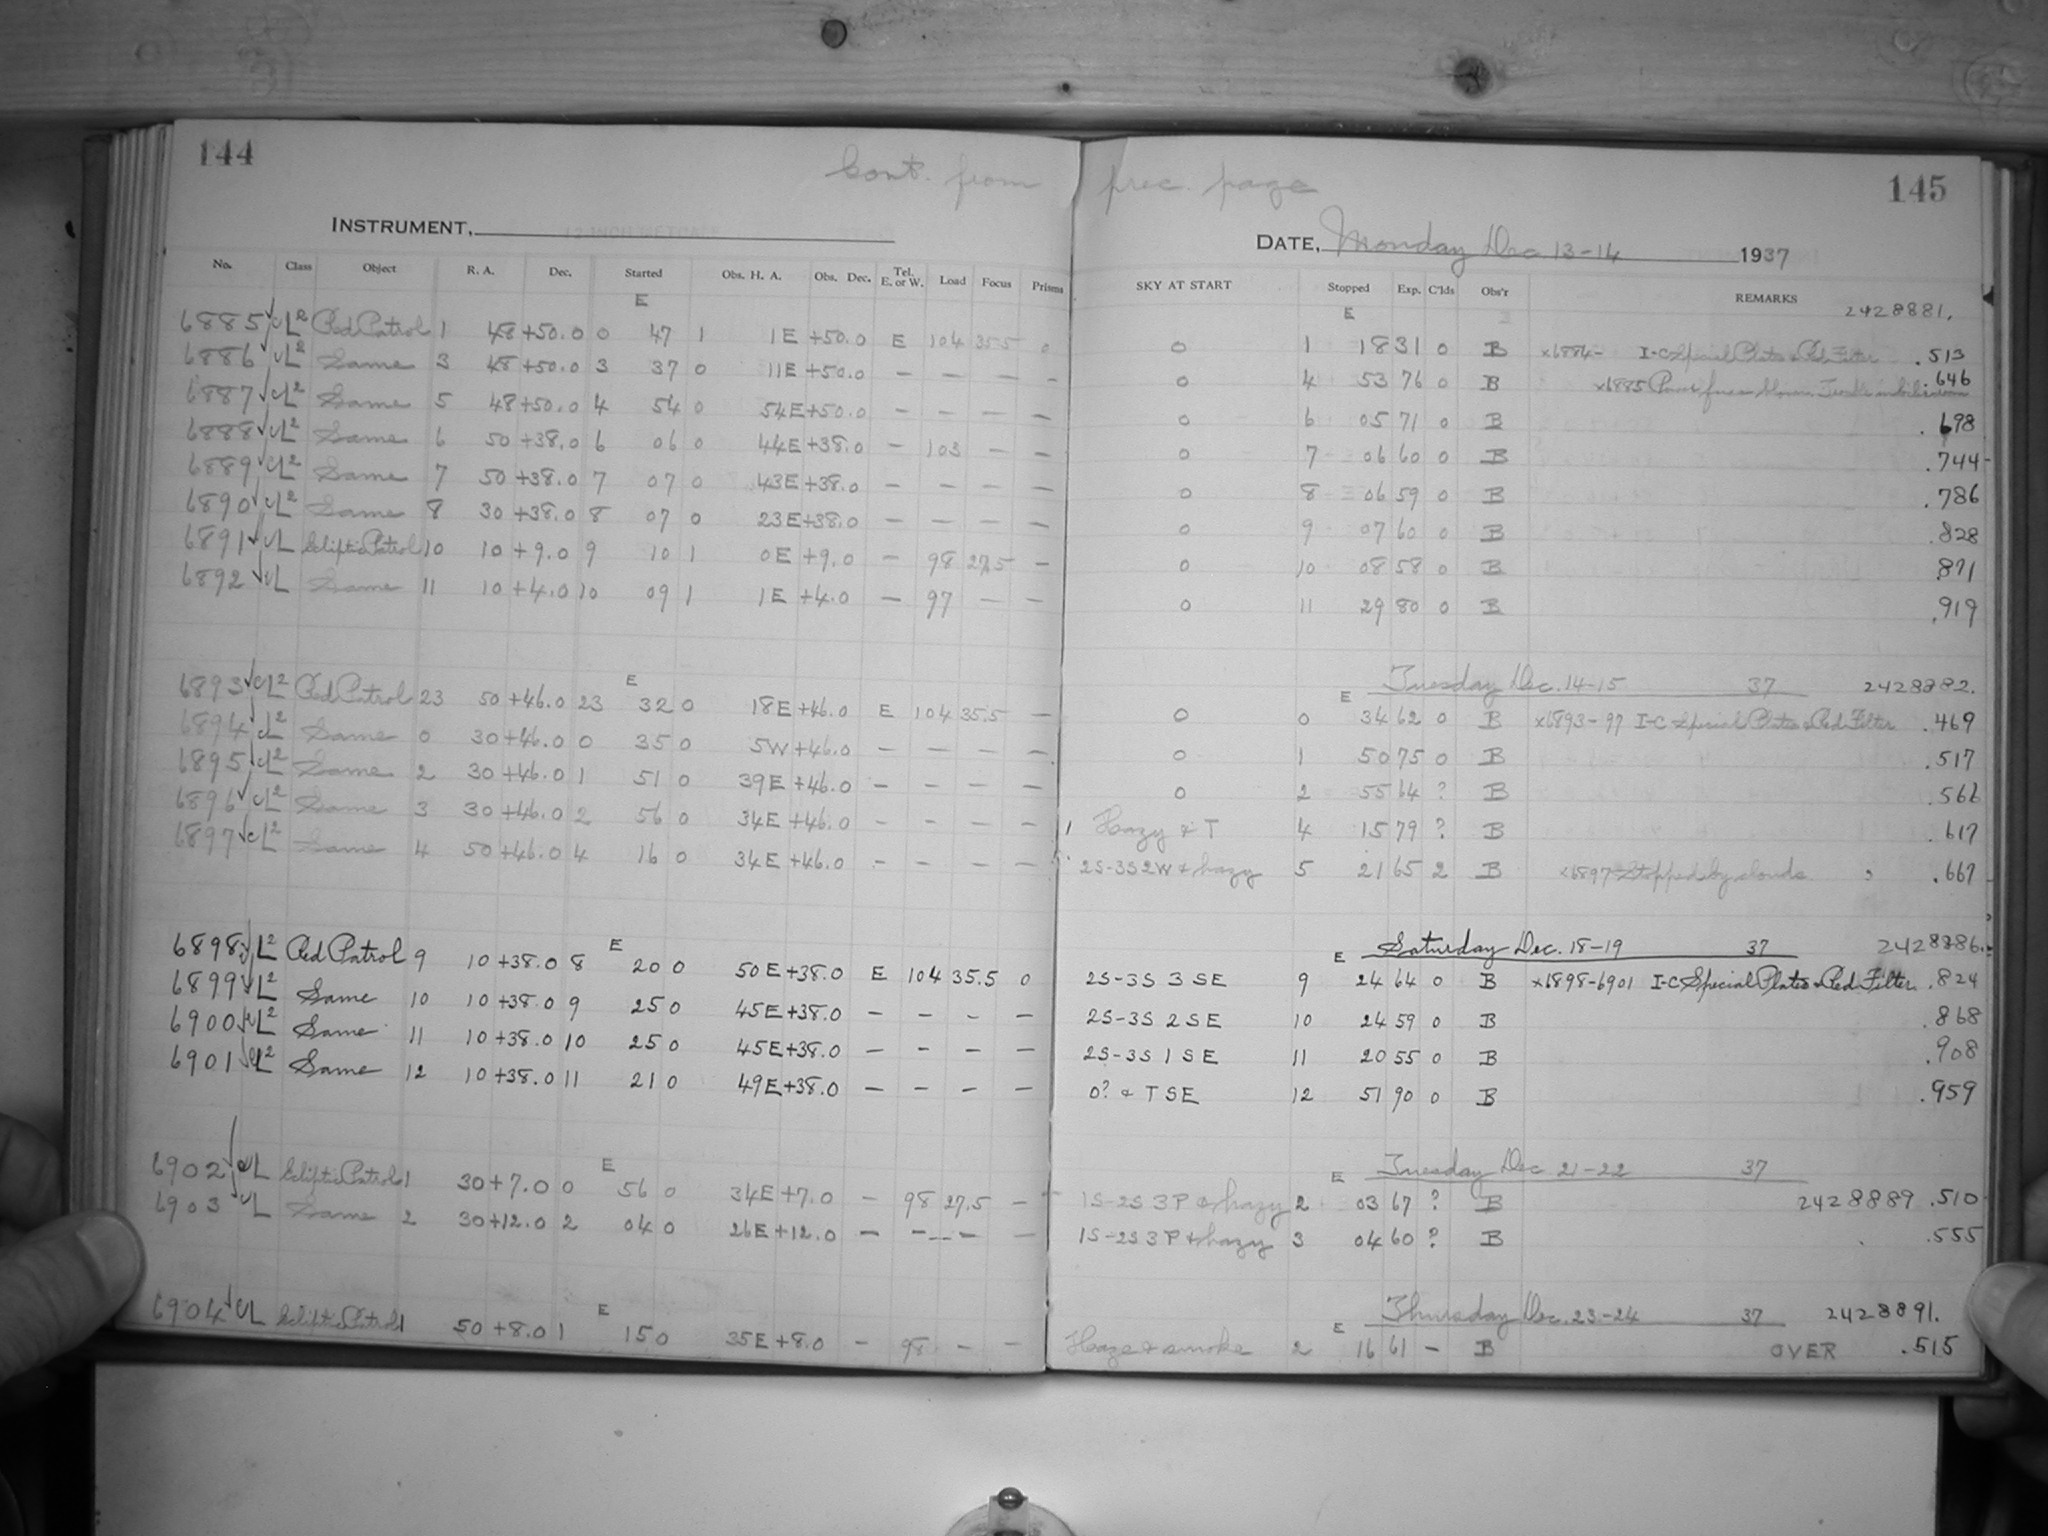 144
Cont. from prec. page
145
INSTRUMENT,
DATE, Monday Dec 13-14 1937
No. Class Object R. A. Dec. Started Obs. H. A. Obs. Dec. Tel. E. or W. Load Focus Prisms SKY AT START Stopped Exp. C'lds Obs'r REMARKS
E E 2428881.
6885 cL2 Red Patrol 1 48 +50.0 0 47 1 1E +50.0 E 104 35.5 0 0 1 18 31 0 B I-C Special Plates & Red Filter .513
6886 cL2 Same 3 48 +50.0 3 37 0 11E +50.0 — — — — 0 4 53 76 0 B x6885 .646
6887 cL2 Same 5 48 +50.0 4 54 0 54E +50.0 — — — — 0 6 05 71 0 B .698
6888 cL2 Same 6 50 +38.0 6 06 0 44E +38.0 — 103 — — 0 7 06 60 0 B .744
6889 cL2 Same 7 50 +38.0 7 07 0 43E +38.0 — — — — 0 8 06 59 0 B .786
6890 cL2 Same 8 30 +38.0 8 07 0 23E +38.0 — — — — 0 9 07 60 0 B .828
6891 cL Ecliptic Patrol 10 10 +9.0 9 10 1 0E +9.0 — 98 27.5 — 0 10 08 58 0 B .871
6892 cL Same 11 10 +4.0 10 09 1 1E +4.0 — 97 — — 0 11 29 80 0 B .919
E E Tuesday Dec. 14-15 37 2428882.
6893 cL2 Red Patrol 23 50 +46.0 23 32 0 18E +46.0 E 104 35.5 — 0 0 34 62 0 B x6893-97 I-C Special Plates & Red Filter .469
6894 cL2 Same 0 30 +46.0 0 35 0 5W +46.0 — — — — 0 1 50 75 0 B .517
6895 cL2 Same 2 30 +46.0 1 51 0 39E +46.0 — — — — 0 2 55 64 ? B .566
6896 cL2 Same 3 30 +46.0 2 56 0 34E +46.0 — — — — Hazy & T 4 15 79 ? B .617
6897 cL2 Same 4 50 +46.0 4 16 0 34E +46.0 — — — — 2S-3S2W & hazy 5 21 65 2 B x6897 Stopped by clouds .667
E E Saturday Dec. 18-19 37 2428886.
6898 cL2 Red Patrol 9 10 +38.0 8 20 0 50E +38.0 E 104 35.5 0 2S-3S 3 SE 9 24 64 0 B x6898-6901 I-C Special Plates & Red Filter .824
6899 cL2 Same 10 10 +38.0 9 25 0 45E +38.0 — — — — 2S-3S 2 SE 10 24 59 0 B .868
6900 cL2 Same 11 10 +38.0 10 25 0 45E +38.0 — — — — 2S-3S 1 SE 11 20 55 0 B .908
6901 cL2 Same 12 10 +38.0 11 21 0 49E +38.0 — — — — 0? & T SE 12 51 90 0 B .959
E E Tuesday Dec 21-22 37
6902 cL Ecliptic Patrol 1 30 +7.0 0 56 0 34E +7.0 — 98 27.5 — 1S-2S 3P & hazy 2 03 67 ? B 2428889 .510
6903 cL Same 2 30 +12.0 2 04 0 26E +12.0 — — — — 1S-2S 3P & hazy 3 04 60 ? B .555
E E Thursday Dec. 23-24 37 2428891.
6904 cL Ecliptic Patrol 1 50 +8.0 1 15 0 35E +8.0 — 98 — — Haze & smoke 2 16 61 — B OVER .515